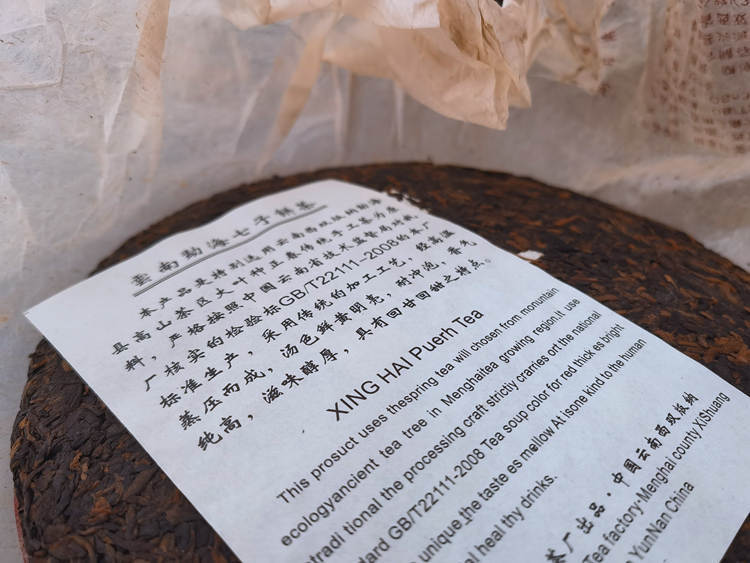 雲南勐海七子餅茶
本产品是特别选用云南西双版纳勐海
县高山茶区大叶种正春传统手工春为原
料，严格按照中国云南省技术监督局
厂核实的检验标GB/T22111-2008的茶厂
标准生产，采用传统的加工工艺，经高温
蒸压而成，汤色鲜黄明亮，耐冲泡，香气
纯高，滋味醇厚，具有回甘回甜之特点。
XING HAI Puerh Tea
This prosuct uses thespring tea will chosen from monuntain
ecologyancient tea tree in Menghaitea growing region.It use
tradi tional the processing craft strictly crarries ort the national
dard GB/T22111-2008 Tea soup color for red thick es bright
unique,the taste es mellow At isone kind to the human
al heal thy drinks.
茶厂出品·中国云南西双版纳
Tea factory·Menghai county XiShuang
YunNan China